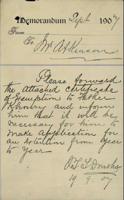 Memorandum Sept 1907
From
To Mr Atkinson
Please forward
the attached certificate
of Exemptions to Fisher
& Country and inform
him that it will be
necessary for him to
make application for
an extention from year
to year
19.9.07